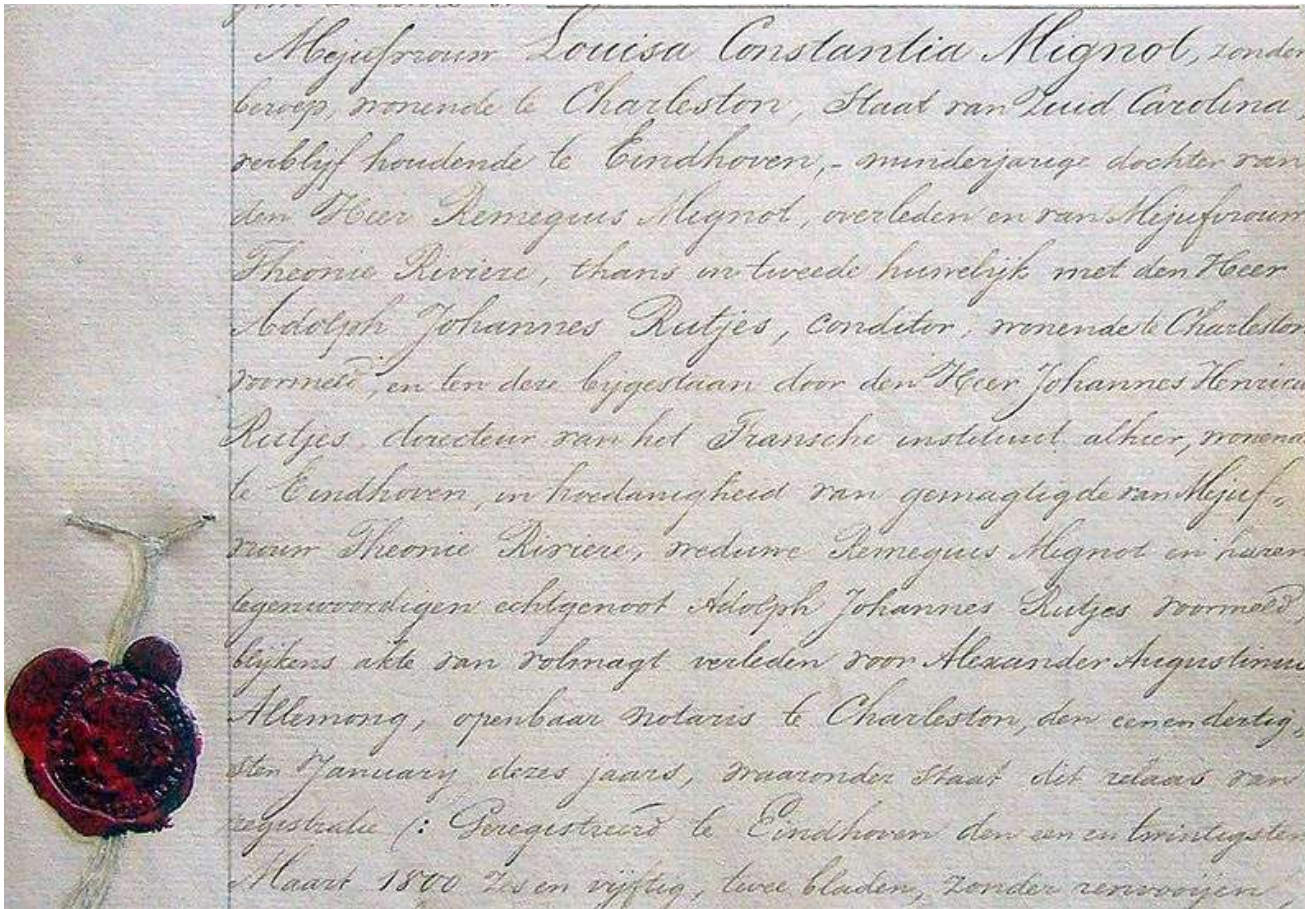 Mejufvrouw Louisa Constantia Mignot, zonder
beroep, wonende te Charleston, Staat van Zuid Carolina,
verblijf houdende te Eindhoven,- minderjarige dochter van
den Heer Remeguis Mignot, overleden en van Mejufvrouw
Theonie Riviere, thans in tweede huwelijk met den Heer
Adolph Johannes Rutjes, conditor, wonende te Charleston
voormeld, en ten deze bijgestaan door den Heer Johannes Henricu
Rutjes, directeur van het Fransche instituut alhier, wonend
te Eindhoven, in hoedanigheid van gemagtigde van Mejuf-
vrouw Theonie Riviere, weduwe Remeguis Mignot en haren
tegenwoordigen echtgenoot Adolph Johannes Rutjes voormeld,
blijkens akte van volmagt verleden voor Alexander Augustinus
Allemong, openbaar notaris te Charleston, den eenendertig-
sten January dezes jaars, waaronder staat dit relaas van
registratie (: Geregistreerd te Eindhoven den een en twintigsten
Maart 1800 zes en vijftig, twee bladen, zonder renvooijen,